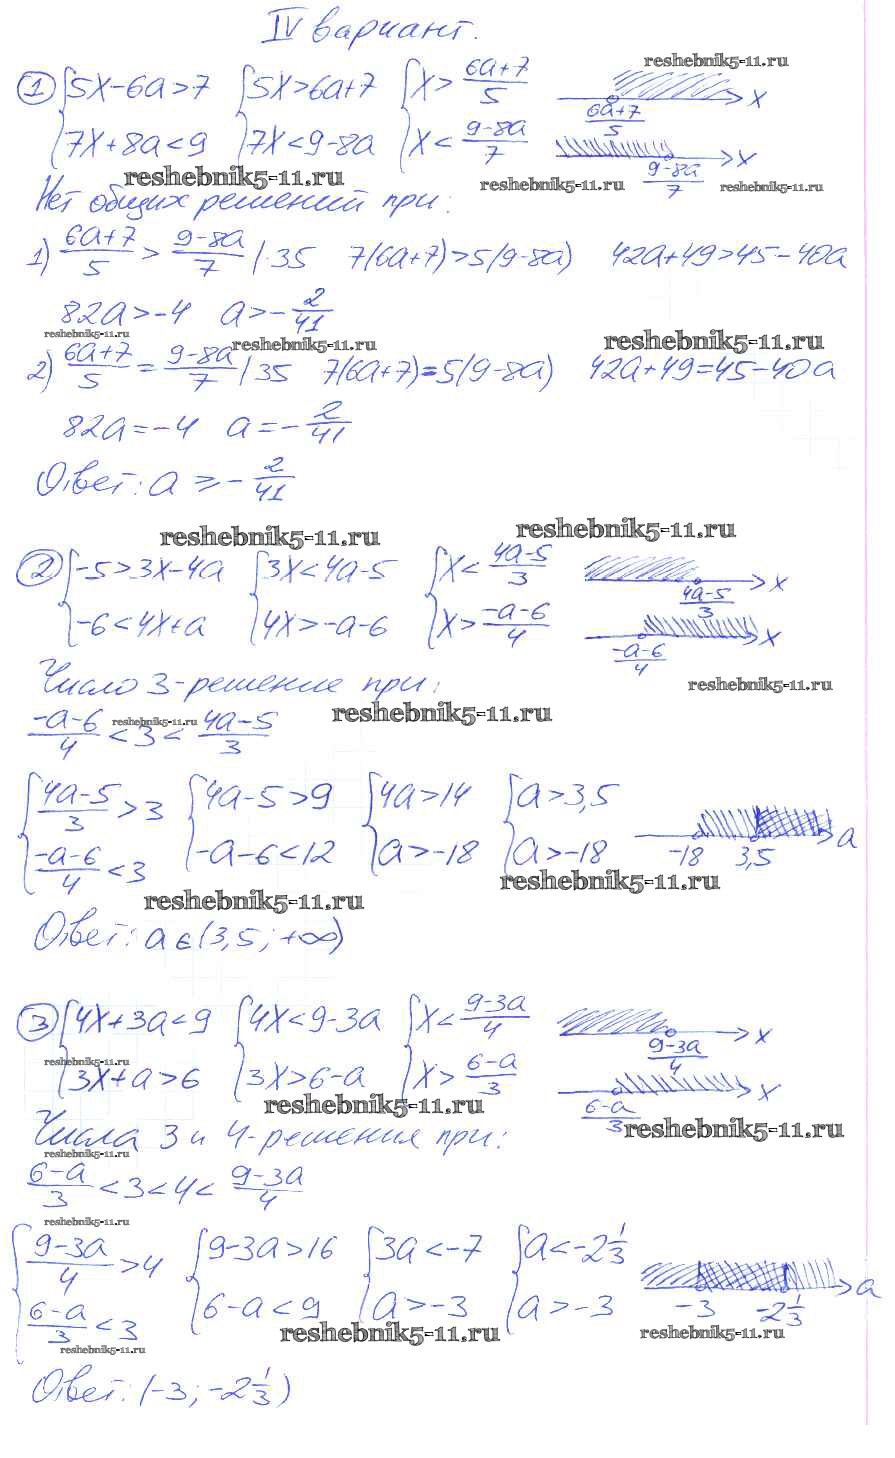 IV вариант.
reshebnik5-11.ru
① {5x-6a>7 {5x>6a+7 {x> (6a+7)/5 x (6a+7)/5
{7x+8a<9 {7x<9-8a {x< (9-8a)/7 x (9-8a)/7
reshebnik5-11.ru reshebnik5-11.ru reshebnik5-11.ru
Нет общих решений при:
1) (6a+7)/5 > (9-8a)/7 |·35 7(6a+7)>5(9-8a) 42a+49>45-40a
82a>-4 a>- 2/41
reshebnik5-11.ru reshebnik5-11.ru reshebnik5-11.ru
2) (6a+7)/5 = (9-8a)/7 |·35 7(6a+7)=5(9-8a) 42a+49=45-40a
82a=-4 a=- 2/41
Ответ: a ≥ - 2/41
reshebnik5-11.ru reshebnik5-11.ru
② {-5>3x-4a {3x<4a-5 {x< (4a-5)/3 x (4a-5)/3
{-6<4x+a {4x>-a-6 {x> (-a-6)/4 x (-a-6)/4
Число 3-решение при:
reshebnik5-11.ru
(-a-6)/4 < 3 < (4a-5)/3
reshebnik5-11.ru reshebnik5-11.ru
{(4a-5)/3 >3 {4a-5>9 {4a>14 {a>3,5
{(-a-6)/4 <3 {-a-6<12 {a>-18 {a>-18 -18 3,5 a
reshebnik5-11.ru reshebnik5-11.ru
Ответ: a∈(3,5; +∞)
③ {4x+3a<9 {4x<9-3a {x< (9-3a)/4 x (9-3a)/4
reshebnik5-11.ru
{3x+a>6 {3x>6-a {x> (6-a)/3 x (6-a)/3
reshebnik5-11.ru reshebnik5-11.ru
Числа 3 и 4-решения при:
reshebnik5-11.ru
(6-a)/3 <3<4< (9-3a)/4
reshebnik5-11.ru
{(9-3a)/4 >4 {9-3a>16 {3a<-7 {a<-2 1/3
{(6-a)/3 <3 {6-a<9 {a>-3 {a>-3 -3 -2 1/3 a
reshebnik5-11.ru reshebnik5-11.ru reshebnik5-11.ru
Ответ: (-3; -2 1/3)